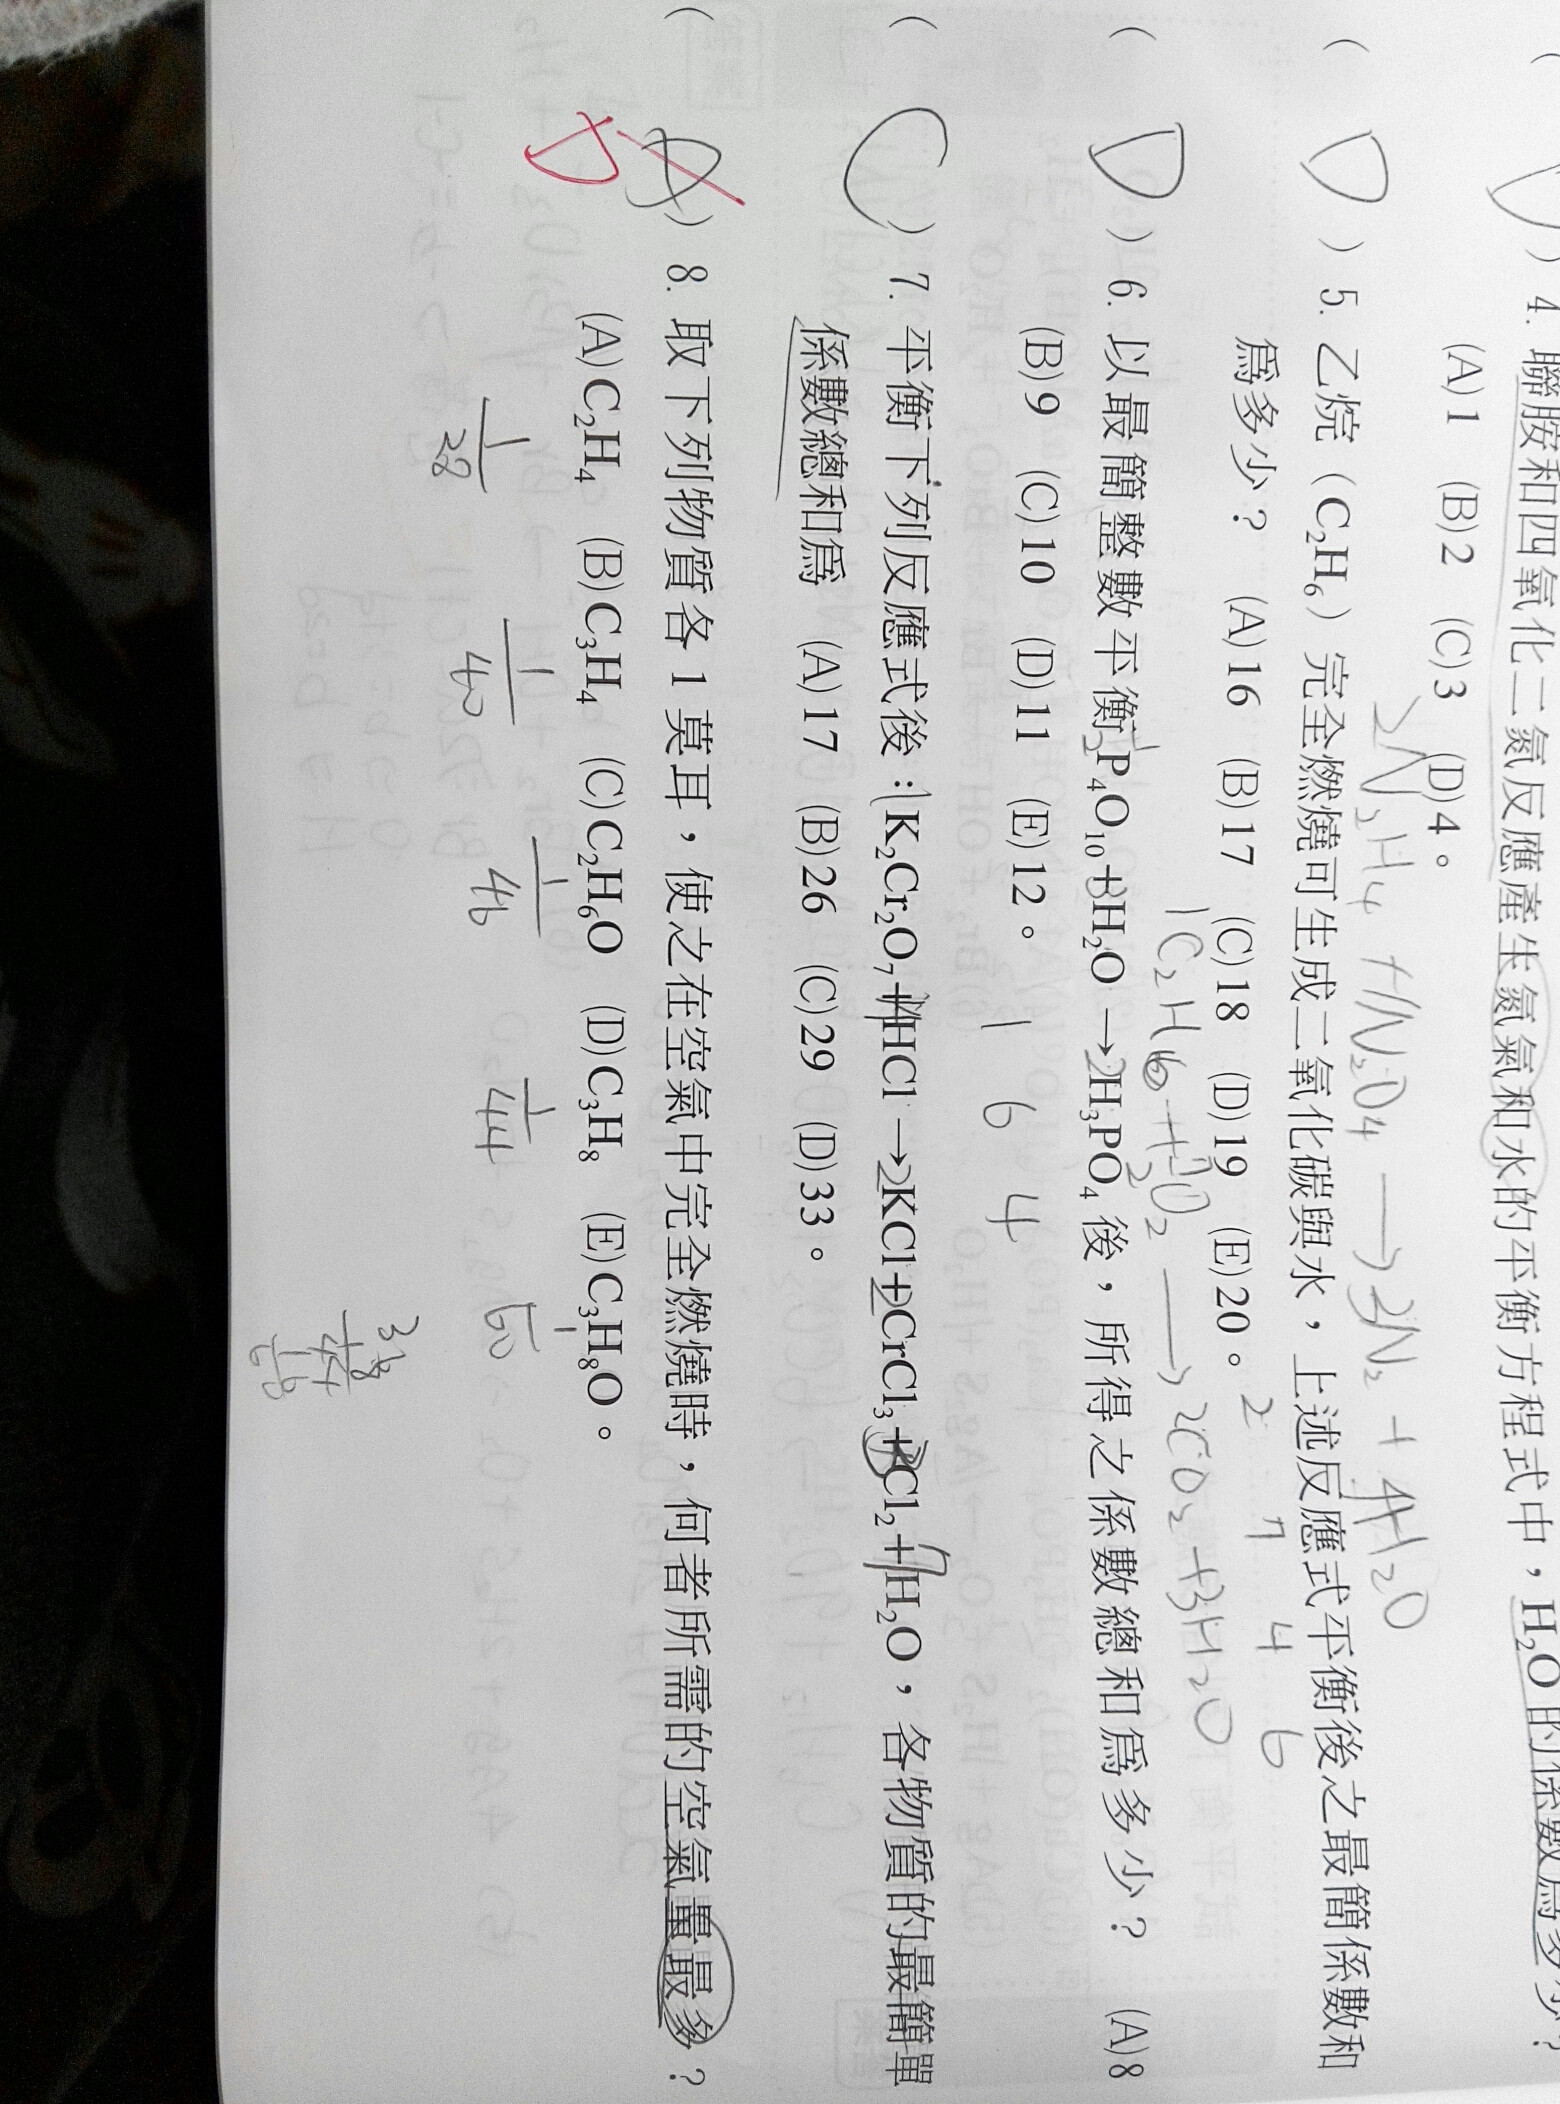 4. 聯胺和四氧化二氮反應產生氮氣和水的平衡方程式中，H₂O的係數為多少？
(A)1 (B)2 (C)3 (D)4。
2N₂H₄ + 1N₂O₄ → 3N₂ + 4H₂O
D
) 5. 乙烷（C₂H₆）完全燃燒可生成二氧化碳與水，上述反應式平衡後之最簡係數和
為多少？ (A)16 (B)17 (C)18 (D)19 (E)20。
2 7 4 6
1C₂H₆ + 7/2 O₂ → 2CO₂ + 3H₂O
D
) 6. 以最簡整數平衡P₄O₁₀+H₂O →H₃PO₄後，所得之係數總和為多少？ (A)8
(B)9 (C)10 (D)11 (E)12。
1 6 4
C
) 7. 平衡下列反應式後：1K₂Cr₂O₇+14HCl →2KCl+2CrCl₃+3Cl₂+7H₂O，各物質的最簡單
係數總和為 (A)17 (B)26 (C)29 (D)33。
A
D
) 8. 取下列物質各1莫耳，使之在空氣中完全燃燒時，何者所需的空氣量最多？
(A)C₂H₄ (B)C₃H₄ (C)C₂H₆O (D)C₃H₈ (E)C₃H₈O。
1/28 1/40 1/46 1/44 1/60